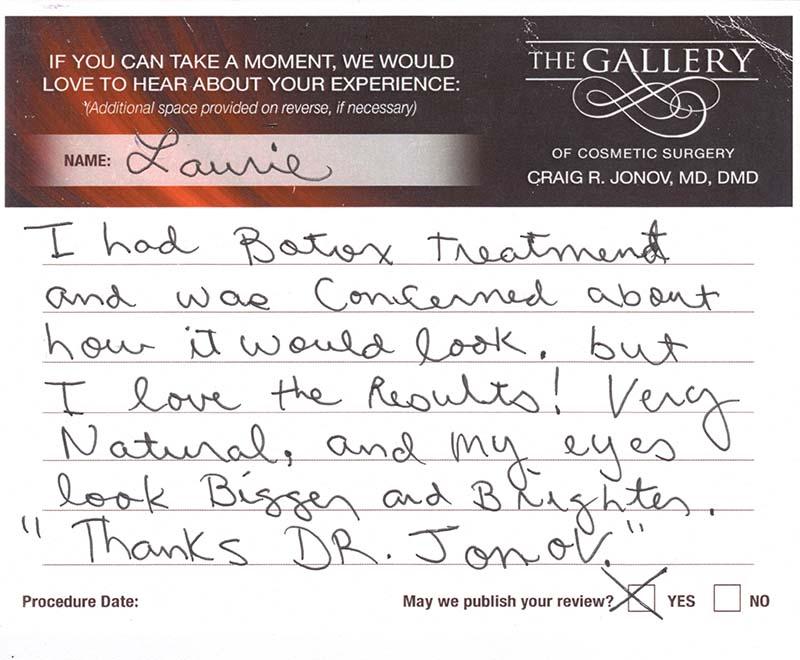 IF YOU CAN TAKE A MOMENT, WE WOULD
LOVE TO HEAR ABOUT YOUR EXPERIENCE:
*(Additional space provided on reverse, if necessary)
NAME: Laurie
THE GALLERY
OF COSMETIC SURGERY
CRAIG R. JONOV, MD, DMD
I had Botox Treatment
and was Concerned about
how it would look. but
I love the Results! Very
Natural, and my eyes
look Bigger and Brighter.
"Thanks DR. Jonov."
Procedure Date:
May we publish your review? YES NO